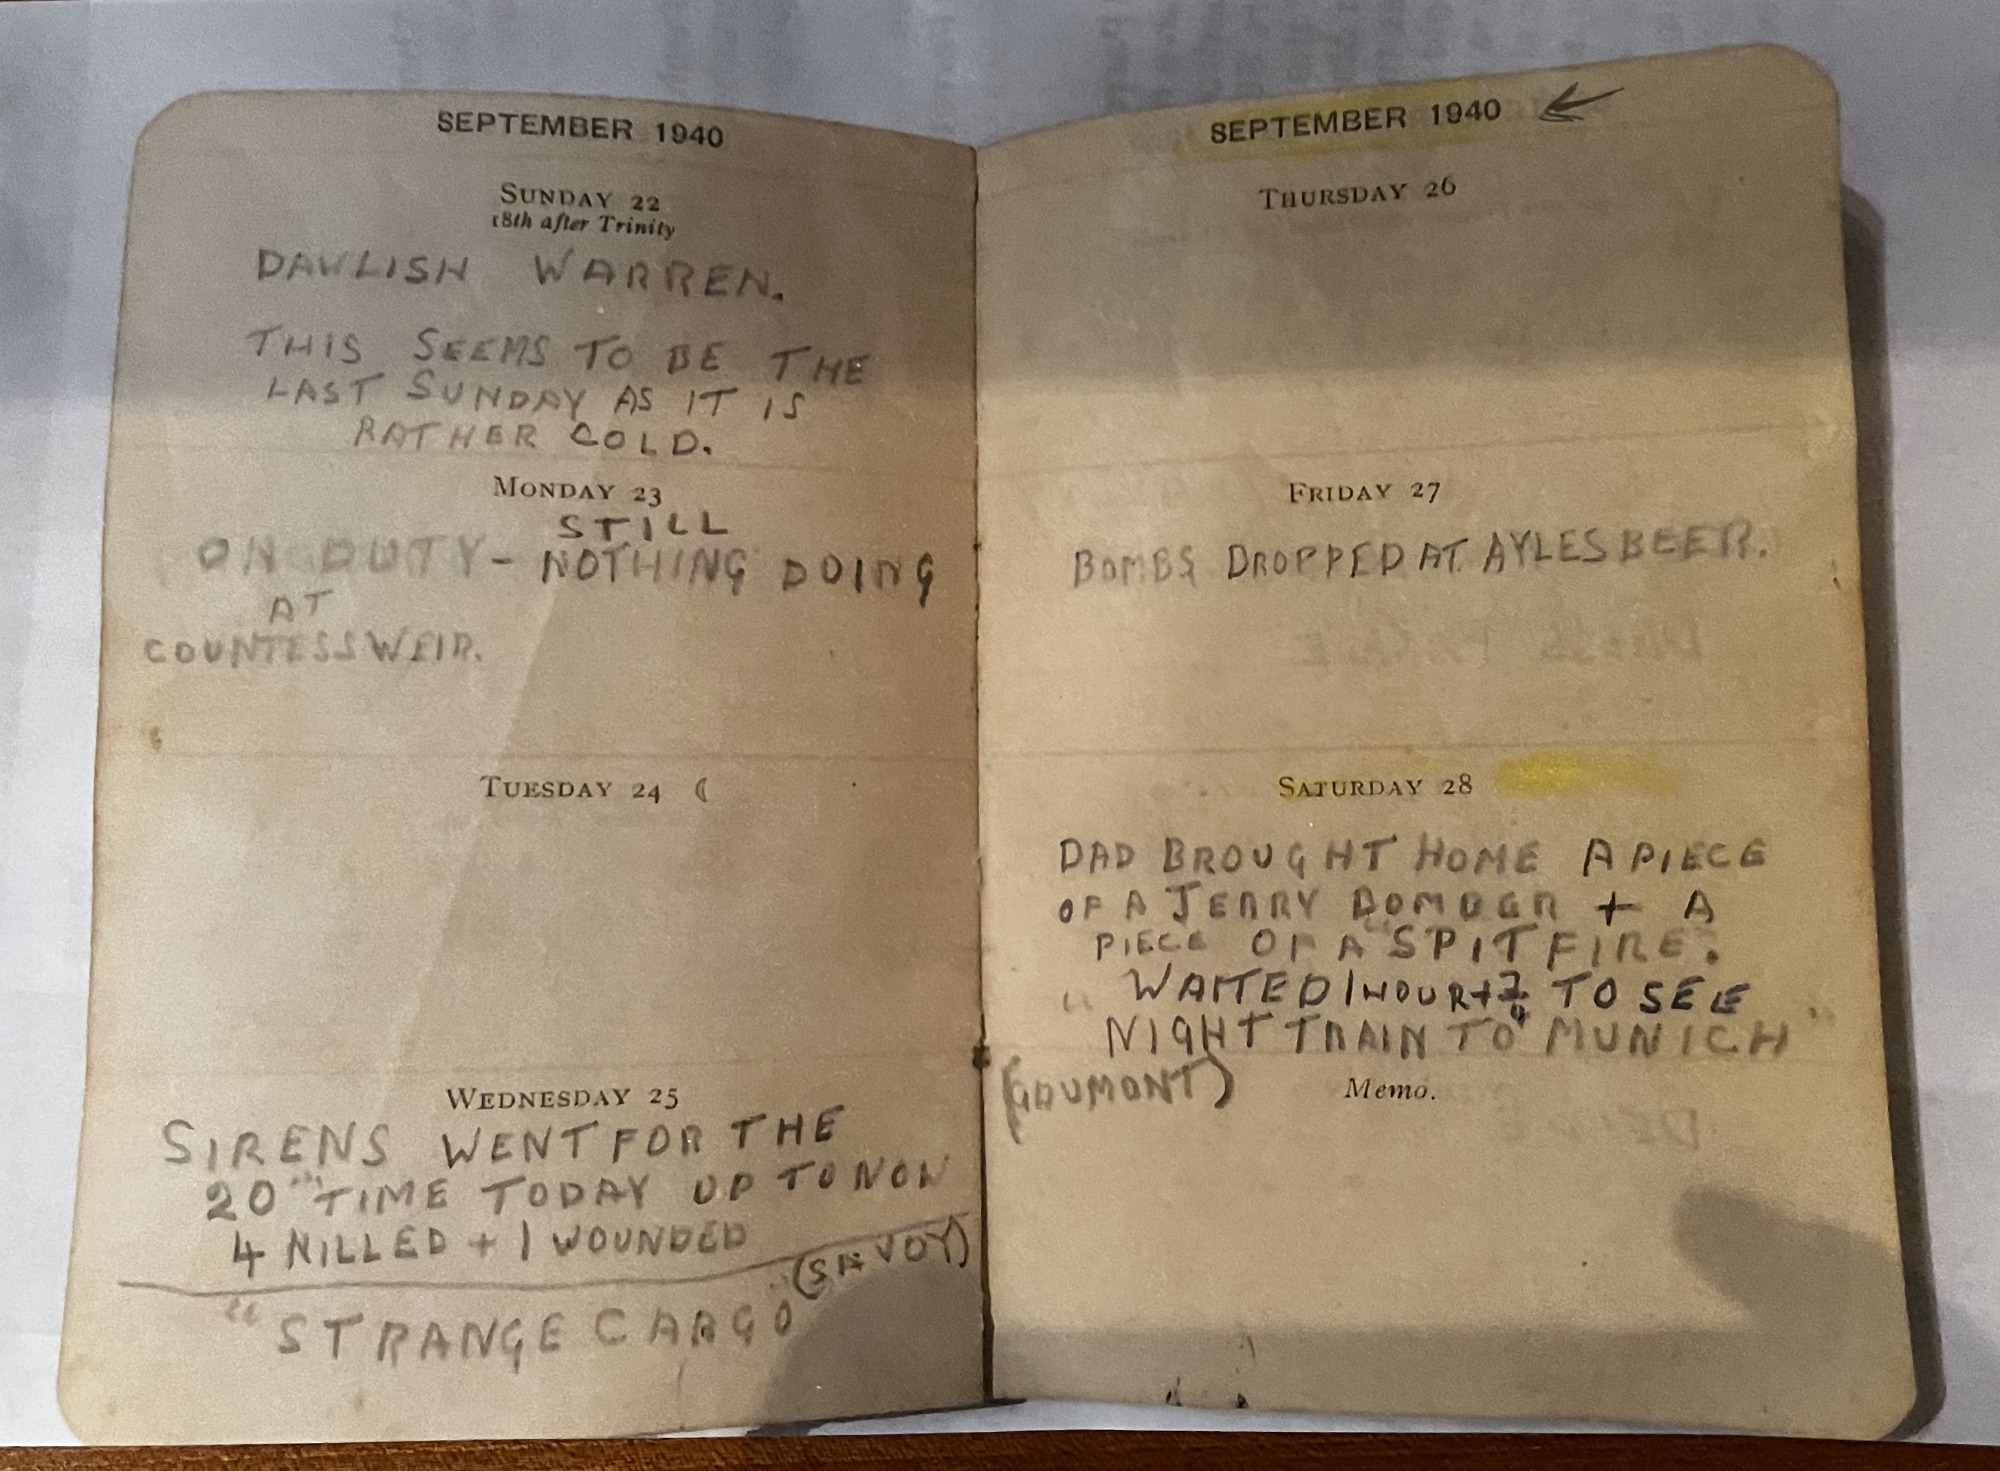 SEPTEMBER 1940
SUNDAY 22
18th after Trinity
DAWLISH WARREN.
THIS SEEMS TO BE THE
LAST SUNDAY AS IT IS
RATHER COLD.
MONDAY 23
STILL
ON DUTY - NOTHING DOING
AT
COUNTESS WEIR.
TUESDAY 24 ☾
WEDNESDAY 25
SIRENS WENT FOR THE
20TH TIME TODAY UP TO NOW
4 KILLED + 1 WOUNDED
(SAVOY)
"STRANGE CARGO"
SEPTEMBER 1940
THURSDAY 26
FRIDAY 27
BOMBS DROPPED AT AYLESBEER.
SATURDAY 28
DAD BROUGHT HOME A PIECE
OF A JERRY BOMBER + A
PIECE OF A "SPITFIRE".
WAITED 1 HOUR + 3/4 TO SEE
"NIGHT TRAIN TO MUNICH"
(GAUMONT)
Memo.